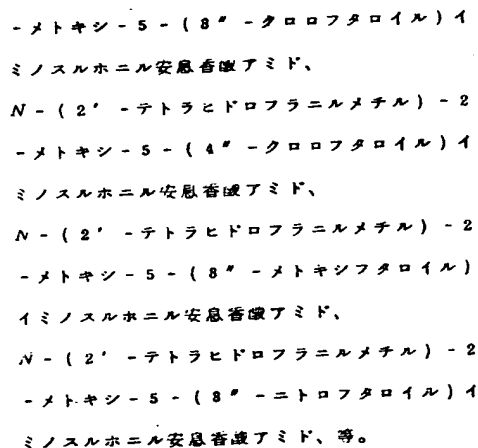 -メトキシ-5-(8″-クロロフタロイル)イ
ミノスルホニル安息香酸アミド、
N-(2′-テトラヒドロフラニルメチル)-2
-メトキシ-5-(4″-クロロフタロイル)イ
ミノスルホニル安息香酸アミド、
N-(2′-テトラヒドロフラニルメチル)-2
-メトキシ-5-(8″-メトキシフタロイル)
イミノスルホニル安息香酸アミド、
N-(2′-テトラヒドロフラニルメチル)-2
-メトキシ-5-(8″-ニトロフタロイル)イ
ミノスルホニル安息香酸アミド、等。